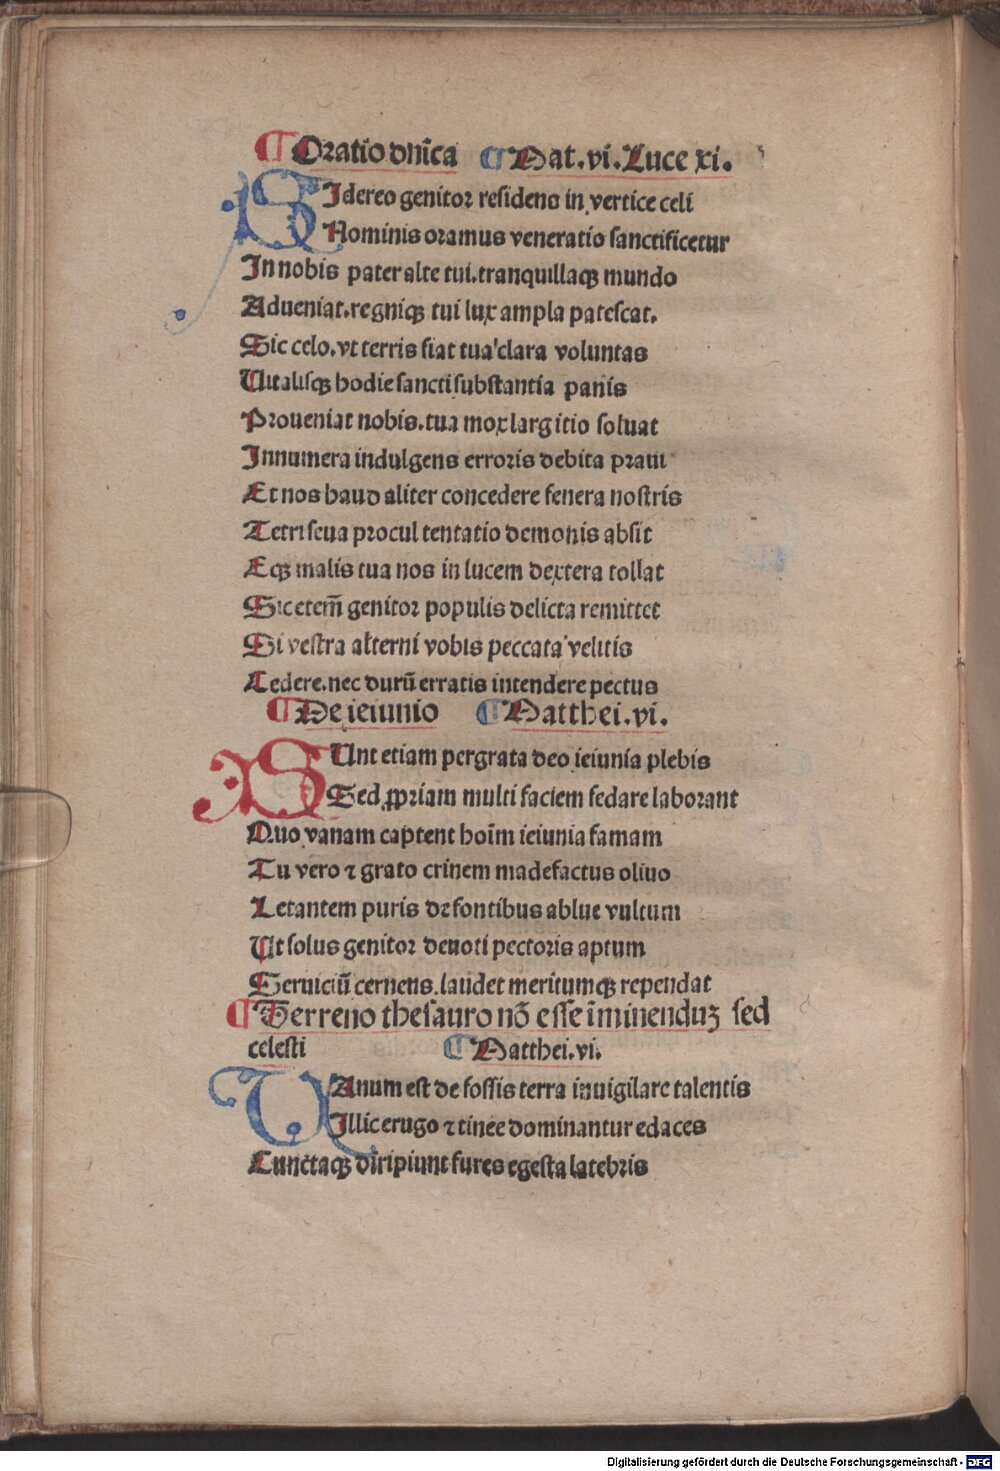 ¶ Oratio dn̄ica ¶ Mat.vi.Luce xi.
SIdereo genitor residens in vertice celi
Nominis oramus veneratio sanctificetur
In nobis pater alte tui.tranquillaqꝫ mundo
Adueniat.regniqꝫ tui lux ampla patescat.
Sic celo.vt terris fiat tua clara voluntas
Uitalisqꝫ hodie sancti substantia panis
Proueniat nobis.tua mox largitio soluat
Innumera indulgens erroris debita praui
Et nos haud aliter concedere fenera nostris
Tetri seua procul tentatio demonis absit
Eqꝫ malis tua nos in lucem dextera tollat
Sic etem̄ genitor populis delicta remittet
Si vestra alterni vobis peccata velitis
Cedere.nec durū erratis intendere pectus
¶ De ieiunio ¶ Matthei.vi.
SUnt etiam pergrata deo ieiunia plebis
Sed ꝓpriam multi faciem fedare laborant
Quo vanam captent hoīm ieiunia famam
Tu vero ⁊ grato crinem madefactus oliuo
Letantem puris de fontibus ablue vultum
Ut solus genitor deuoti pectoris aptum
Seruiciū cernens.laudet meritumqꝫ rependat
¶ Terreno thesauro nō esse īminenduꝫ sed
celesti ¶ Matthei.vi.
VAnum est de fossis terra inuigilare talentis
Illic erugo ⁊ tinee dominantur edaces
Cunctaqꝫ diripiunt fures egesta latebris
Digitalisierung gefördert durch die Deutsche Forschungsgemeinschaft - DFG